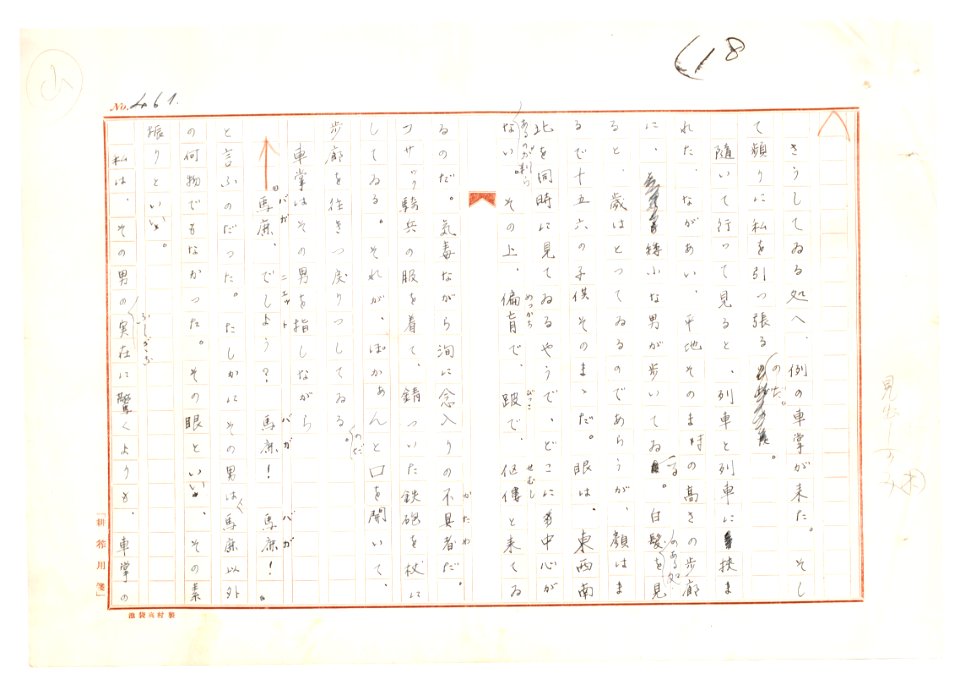 (18
No. 461.
さうしてゐる処へ、例の車掌が来た。そし
て頻りに私を引っ張るのだ。
随いて行って見ると、列車と列車に挟ま
れた、ながあい、平地そのまゝの高さの歩廊
に、小な男が歩いてゐる。白髪のある処を見
ると、歳はとつてゐるのであらうが、顔はま
るで十五六の子供そのまゝだ。眼は、東西南
北を同時に見てゐるやうで、どこに中心が
あるのか判ら
ない。その上、偏盲で、跛で、佝僂と来てゐ
めつかち
びつこ
せむし
るのだ。気毒ながら洵に念入りの不具者だ。
かたわ
コサック騎兵の服を着て、錆ついた鉄砲を杖に
してゐる。それが、ぽかあんと口を開いて、
歩廊を往きつ戻りつしてゐるのだ。
車掌はその男を指しながら
馬鹿、でしよう?馬鹿!馬鹿!
バガ
ニェット
バガ
バガ
と言ふのだつた。たしかにその男は馬鹿以外
の何物でもなかつた。その眼といい、その素
振りといい。
私は、その男の実在に驚くよりも、車掌の
「耕谷川箋」